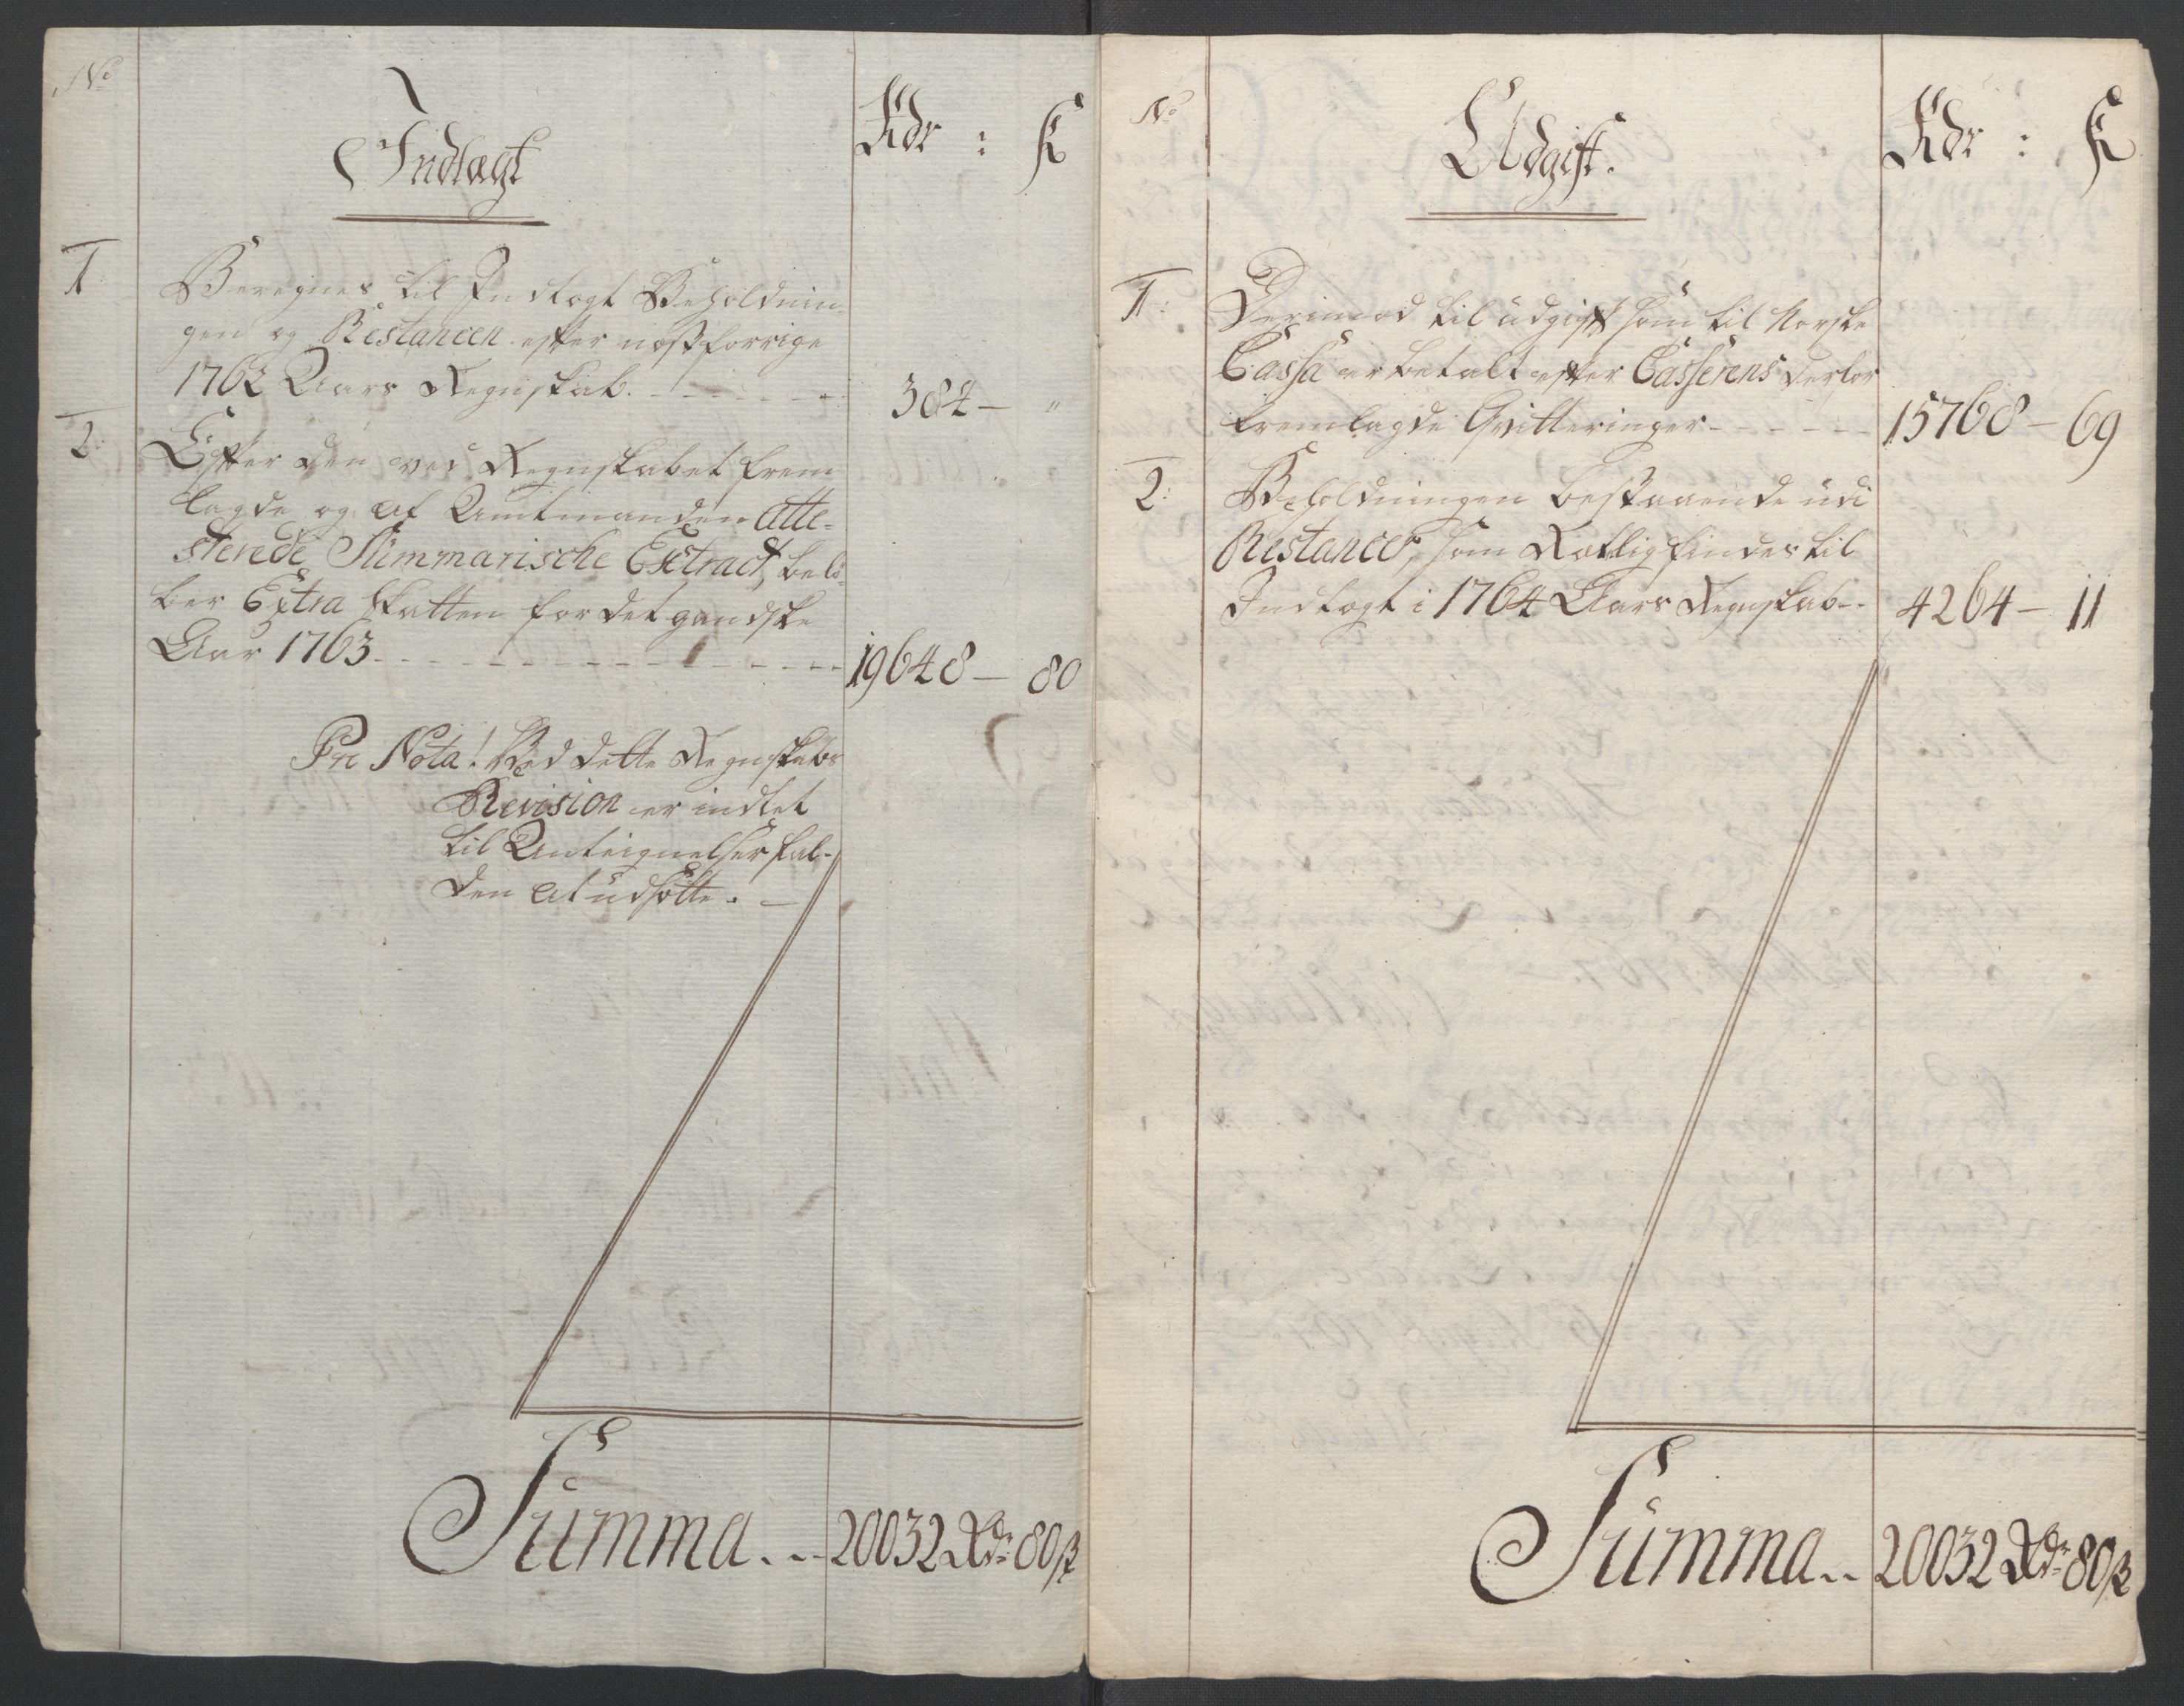 No
Indtægt
Rdr : ß
1.
Beregnes til Indtægt Beholdnin-
gen og Restancen efter nestforrige
1762 Aars Regnskab. - - - - - - - 384 — "
2.
Efter den ved Regnskabet frem
lagde og af Amtmanden Atte-
sterede Summarische Extract, belö-
ber Extra Skatten for det gandske
Aar 1763 - - - - - - - - - - 19648 — 80
Pr Nota! Ved dette Regnskabs
Revision er indtet
til Anteignelser fal-
den at udsætte. —
Summa . . - 20032 Rdr 80 ß
No
Udgift.
Rdr : ß
1:
Derimod til udgift som til Norske
Cassa er betalt efter Casserens derfor
fremlagde Qvitteringer - - - - - - 15768 — 69
2:
Beholdningen bestaaende udi
Restancer, som Rætlig findes til
Indtægt i 1764 Aars Regnskab - - 4264 — 11
Summa . . 20032 Rdr 80 ß